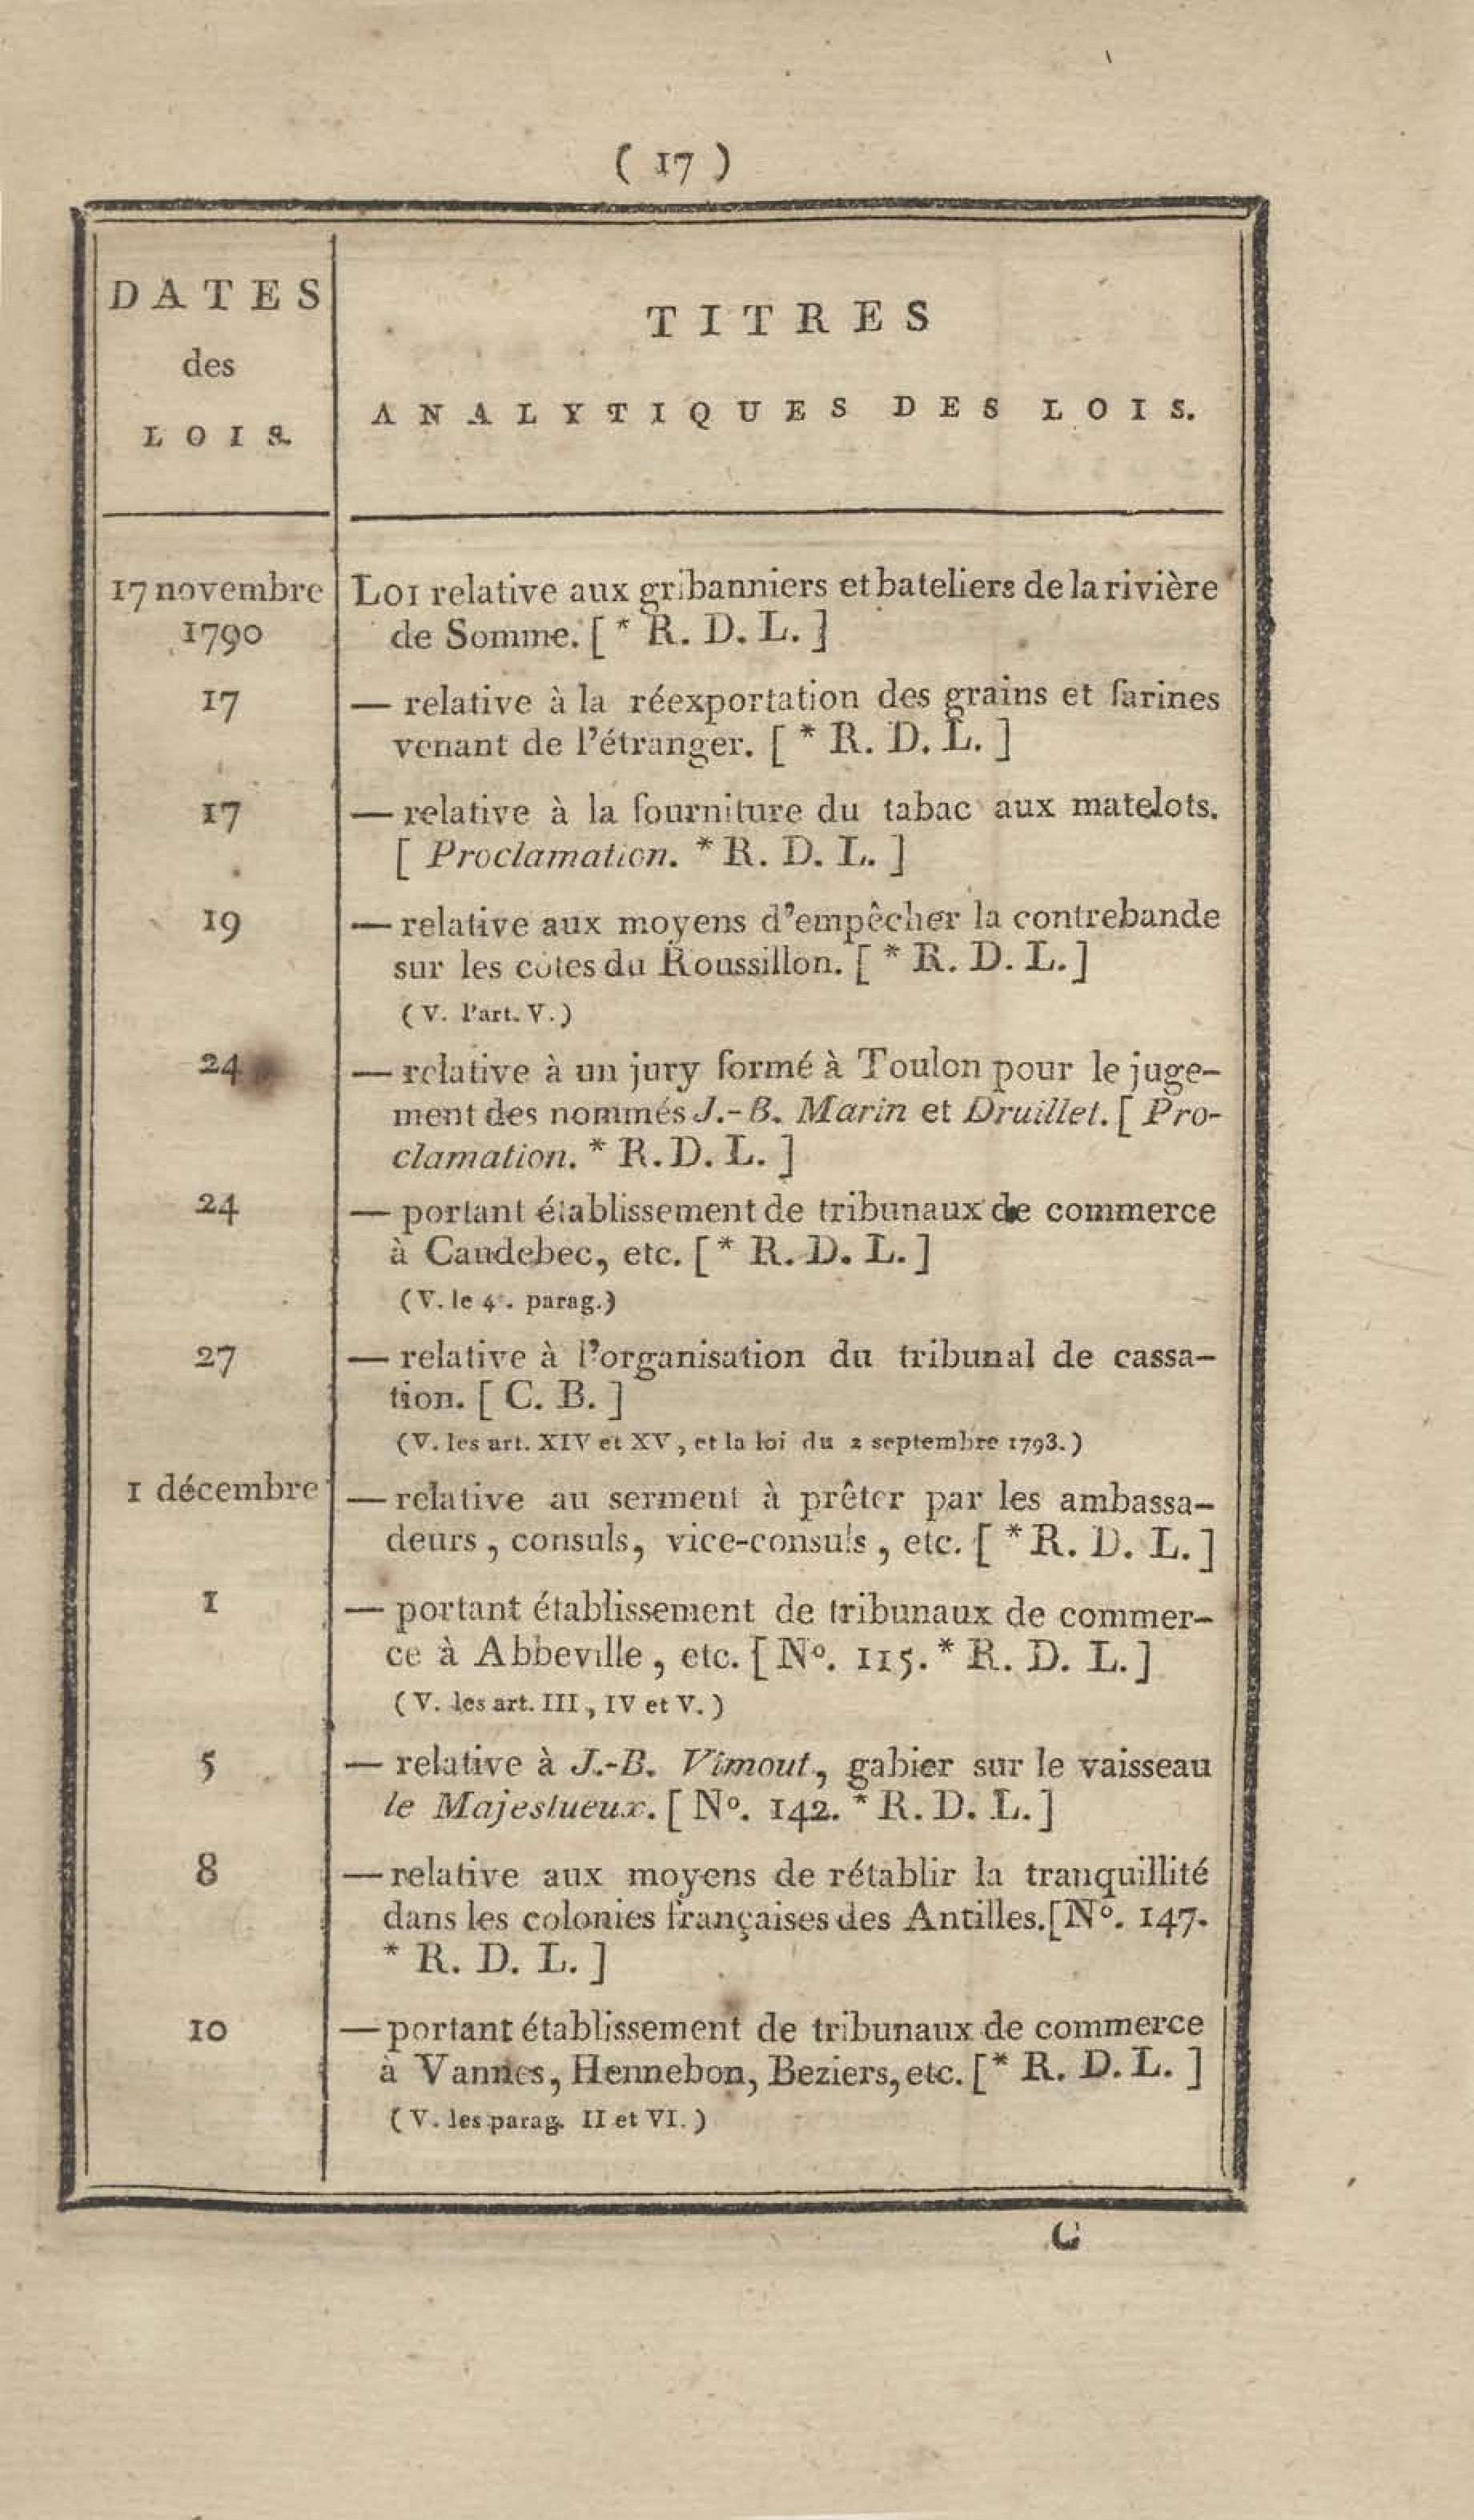 ( 17 )
DATES
des
LOIS.
TITRES
ANALYTIQUES DES LOIS.
17 novembre
1790
LOI relative aux gribanniers et bateliers de la rivière
de Somme. [ * R. D. L. ]
17
— relative à la réexportation des grains et farines
venant de l'étranger. [ * R. D. L. ]
17
— relative à la fourniture du tabac aux matelots.
[ Proclamation. * R. D. L. ]
19
— relative aux moyens d'empêcher la contrebande
sur les côtes du Roussillon. [ * R. D. L. ]
( V. l'art. V. )
24
— relative à un jury formé à Toulon pour le juge-
ment des nommés J.-B. Marin et Druillet. [ Pro-
clamation. * R. D. L. ]
24
— portant établissement de tribunaux de commerce
à Caudebec, etc. [ * R. D. L. ]
( V. le 4e. parag. )
27
— relative à l'organisation du tribunal de cassa-
tion. [ C. B. ]
( V. les art. XIV et XV, et la loi du 2 septembre 1793. )
1 décembre
— relative au serment à prêter par les ambassa-
deurs, consuls, vice-consuls, etc. [ * R. D. L. ]
1
— portant établissement de tribunaux de commer-
ce à Abbeville, etc. [ Nº. 115. * R. D. L. ]
( V. les art. III, IV et V. )
5
— relative à J.-B. Vimout, gabier sur le vaisseau
le Majestueux. [ Nº. 142. * R. D. L. ]
8
— relative aux moyens de rétablir la tranquillité
dans les colonies françaises des Antilles. [ Nº. 147.
* R. D. L. ]
10
— portant établissement de tribunaux de commerce
à Vannes, Hennebon, Beziers, etc. [ * R. D. L. ]
( V. les parag. II et VI. )
C